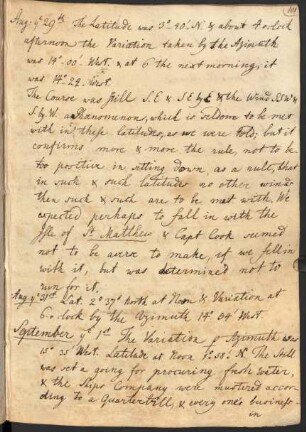 Aug: yᵉ 29ᵗʰ The Latitude was 3°. 40'. N. & about 4 o'clock
afternoon the Variation taken by the Azimuth
was 14°. 00'. West. & at 6 the next morning, it
was 14°. 24'. West.
The Course was still S.E & S E by E & the Wind S S W &
S by W. a Phænomenon, which is seldom to be met
with in these latitudes, as we were told; but it
confirms more & more the rule not to be
too positive in sitting down, as a rule, that
in such & such latitudes no other winds
then such & such are to be met with. We
expected perhaps to fall in with the
Isle of St. Matthew & Capt Cook seemed
not to be averse to make, if we fell in
with it, but was determined not to
run for it.
Aug yᵉ 31ˢᵗ Lat. 2° 37' north at Noon & Variation at
6 o clock by the Azimuth 14° 04' West.
September yᵉ 1ˢᵗ The Variation p Azymuth was
15° 35' West. Latitude at Noon 1°. 58'. N. The Still
was set a going for procuring fresh water,
& the Ships Company were mustered accor
ding to a Quarterbill, & every one's business
in